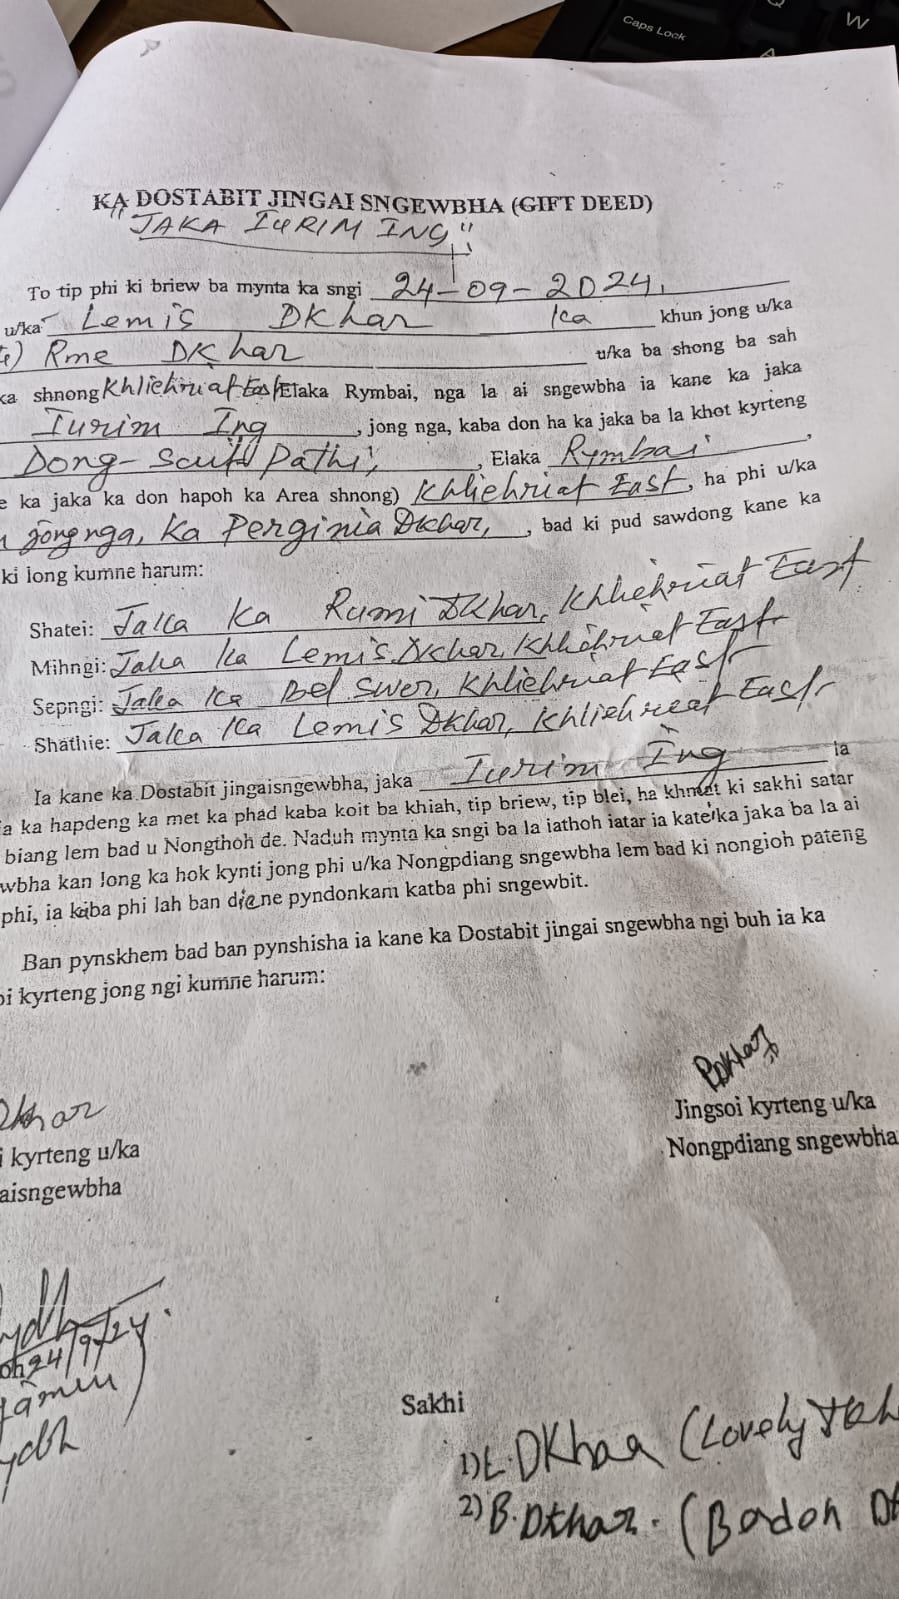 Caps Lock
Q
W
A
KA DOSTABIT JINGAI SNGEWBHA (GIFT DEED)
"JAKA IURIM ING"
To tip phi ki briew ba mynta ka sngi 24-09-2024,
u/ka Lemis Dkhar ka khun jong u/ka
) Rme Dkhar u/ka ba shong ba sah
ka shnong Khliehriat East/Elaka Rymbai, nga la ai sngewbha ia kane ka jaka
Iurim Ing, jong nga, kaba don ha ka jaka ba la khot kyrteng
Dong- Pathi, Elaka Rymbai,
e ka jaka ka don hapoh ka Area shnong) Khliehriat East, ha phi u/ka
jong nga, Ka Perginia Dkhar, , bad ki pud sawdong kane ka
ki long kumne harum:
Shatei: Jaka ka Rumi Dkhar, Khliehriat East
Mihngi: Jaka ka Lemis Dkhar, Khliehriat East
Sepngi: Jaka ka Bel Swer, Khliehriat East
Shathie: Jaka ka Lemis Dkhar, Khliehriat East
Ia kane ka Dostabit jingaisngewbha, jaka Iurim Ing la
ia ka hapdeng ka met ka phad kaba koit ba khiah, tip briew, tip blei, ha khmat ki sakhi satar
biang lem bad u Nongthoh de. Naduh mynta ka sngi ba la iathoh iatar ia kate ka jaka ba la ai
wbha kan long ka hok kynti jong phi u/ka Nongpdiang sngewbha lem bad ki nongioh pateng
phi, ia kaba phi lah ban diene pyndonkam katba phi sngewbit.
Ban pynskhem bad ban pynshisha ia kane ka Dostabit jingai sngewbha ngi buh ia ka
oi kyrteng jong ngi kumne harum:
Dkhar
i kyrteng u/ka
aisngewbha
Jingsoi kyrteng u/ka
Nongpdiang sngewbha
24/9/24
Sakhi
1) L. Dkhar (Lovely
2) B. Dkhar. (Badon